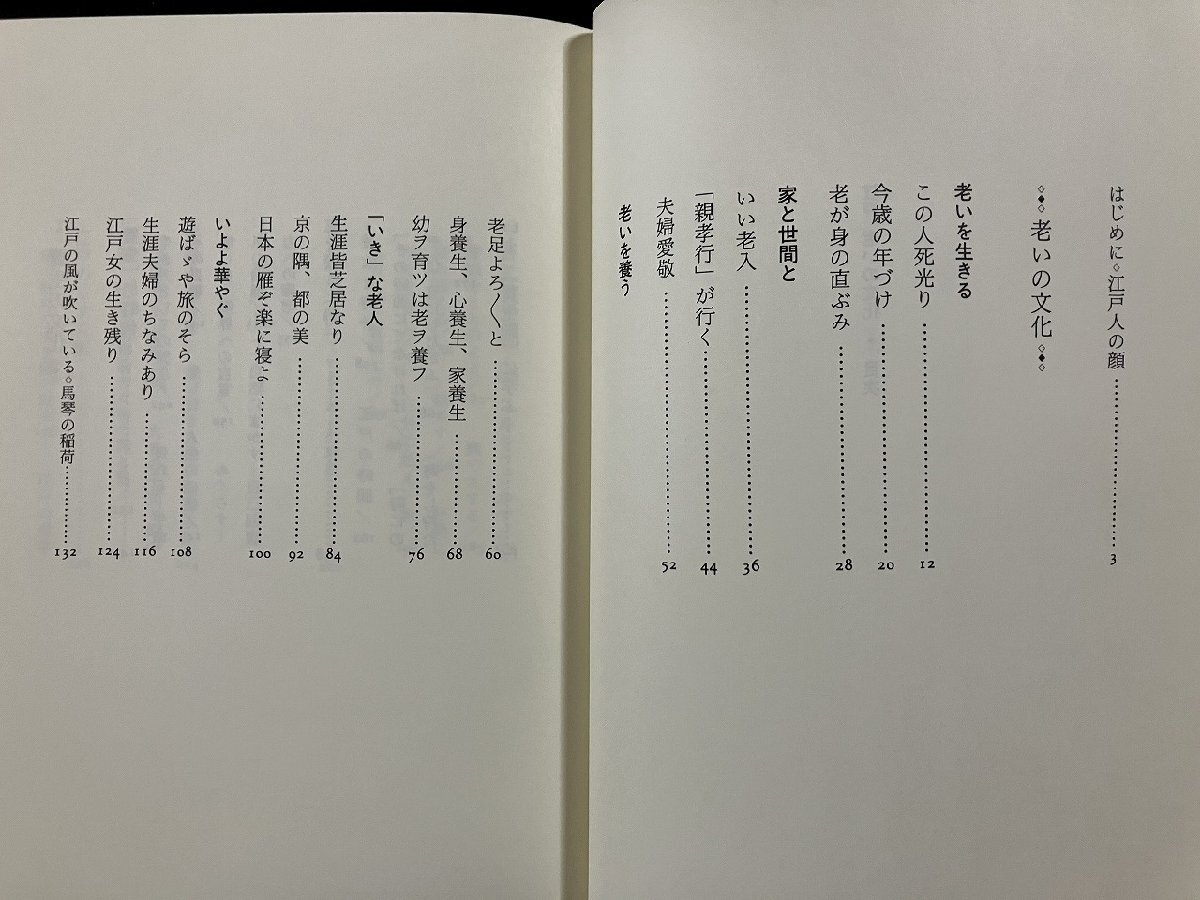 はじめに◇江戸人の顔……………………3
◇◆◇ 老いの文化 ◇◆◇
老いを生きる
この人死光り……………………12
今歳の年づけ……………………20
老が身の直ぶみ……………………28
家と世間と
いい老入……………………36
「親孝行」が行く……………………44
夫婦愛敬……………………52
老いを養う
老足よろ〱と……………………60
身養生、心養生、家養生……………………68
幼ヲ育ツは老ヲ養フ……………………76
「いき」な老人
生涯皆芝居なり……………………84
京の隅、都の美……………………92
日本の雁ぞ楽に寝よ……………………100
いよよ華やぐ
遊ばゞや旅のそら……………………108
生涯夫婦のちなみあり……………………116
江戸女の生き残り……………………124
江戸の風が吹いている◇馬琴の稲荷……………………132